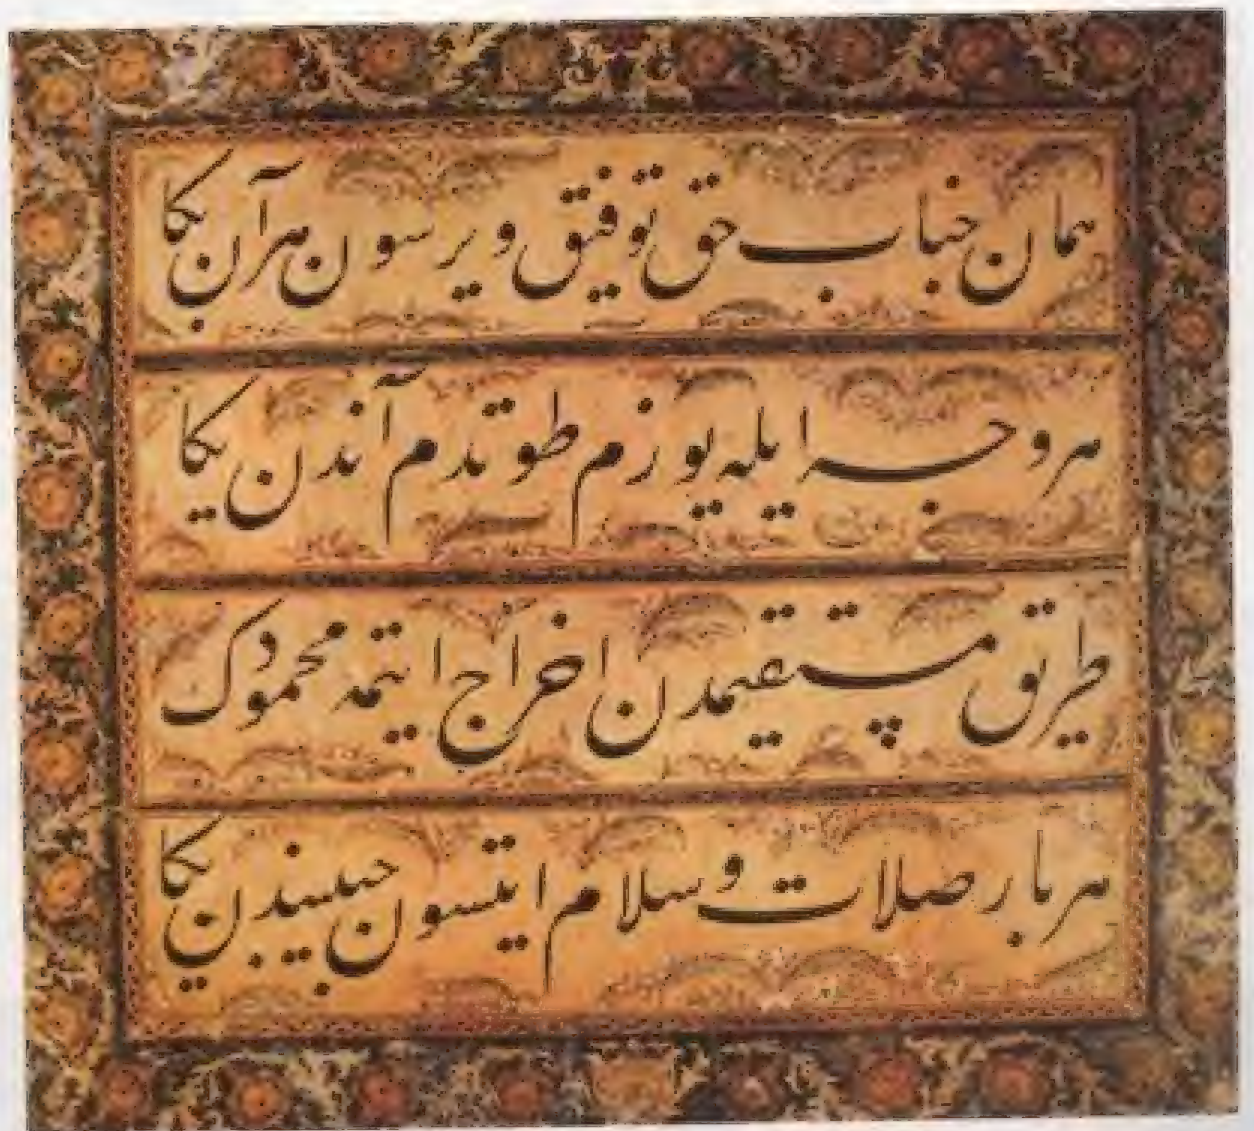 همان جناب حق توفیق ویرسون هر آن بکا
هر وجه ایله یوزم طوتدم آندن یکا
طریق مستقیمدن اخراج ایتمه محمودک
هر بار صلات و سلام ایتسون حبیبندن یکا